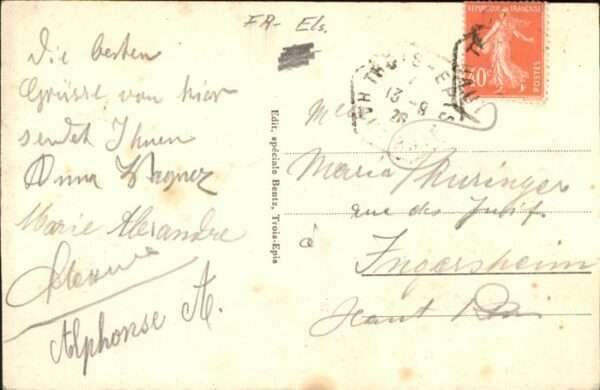 FR- Els.
Die besten
Grüsse von hier
sendet Ihnen
Anna Wagner
Marie Alexandre
Alphonse A.
Edit. spéciale Bentz, Trois-Epis
REPUBLIQUE FRANÇAISE
POSTES
TROIS-EPIS
13-8
26
Mlle
Maria Thuringer
rue des Juifs
à
Ingersheim
Haut Rhin